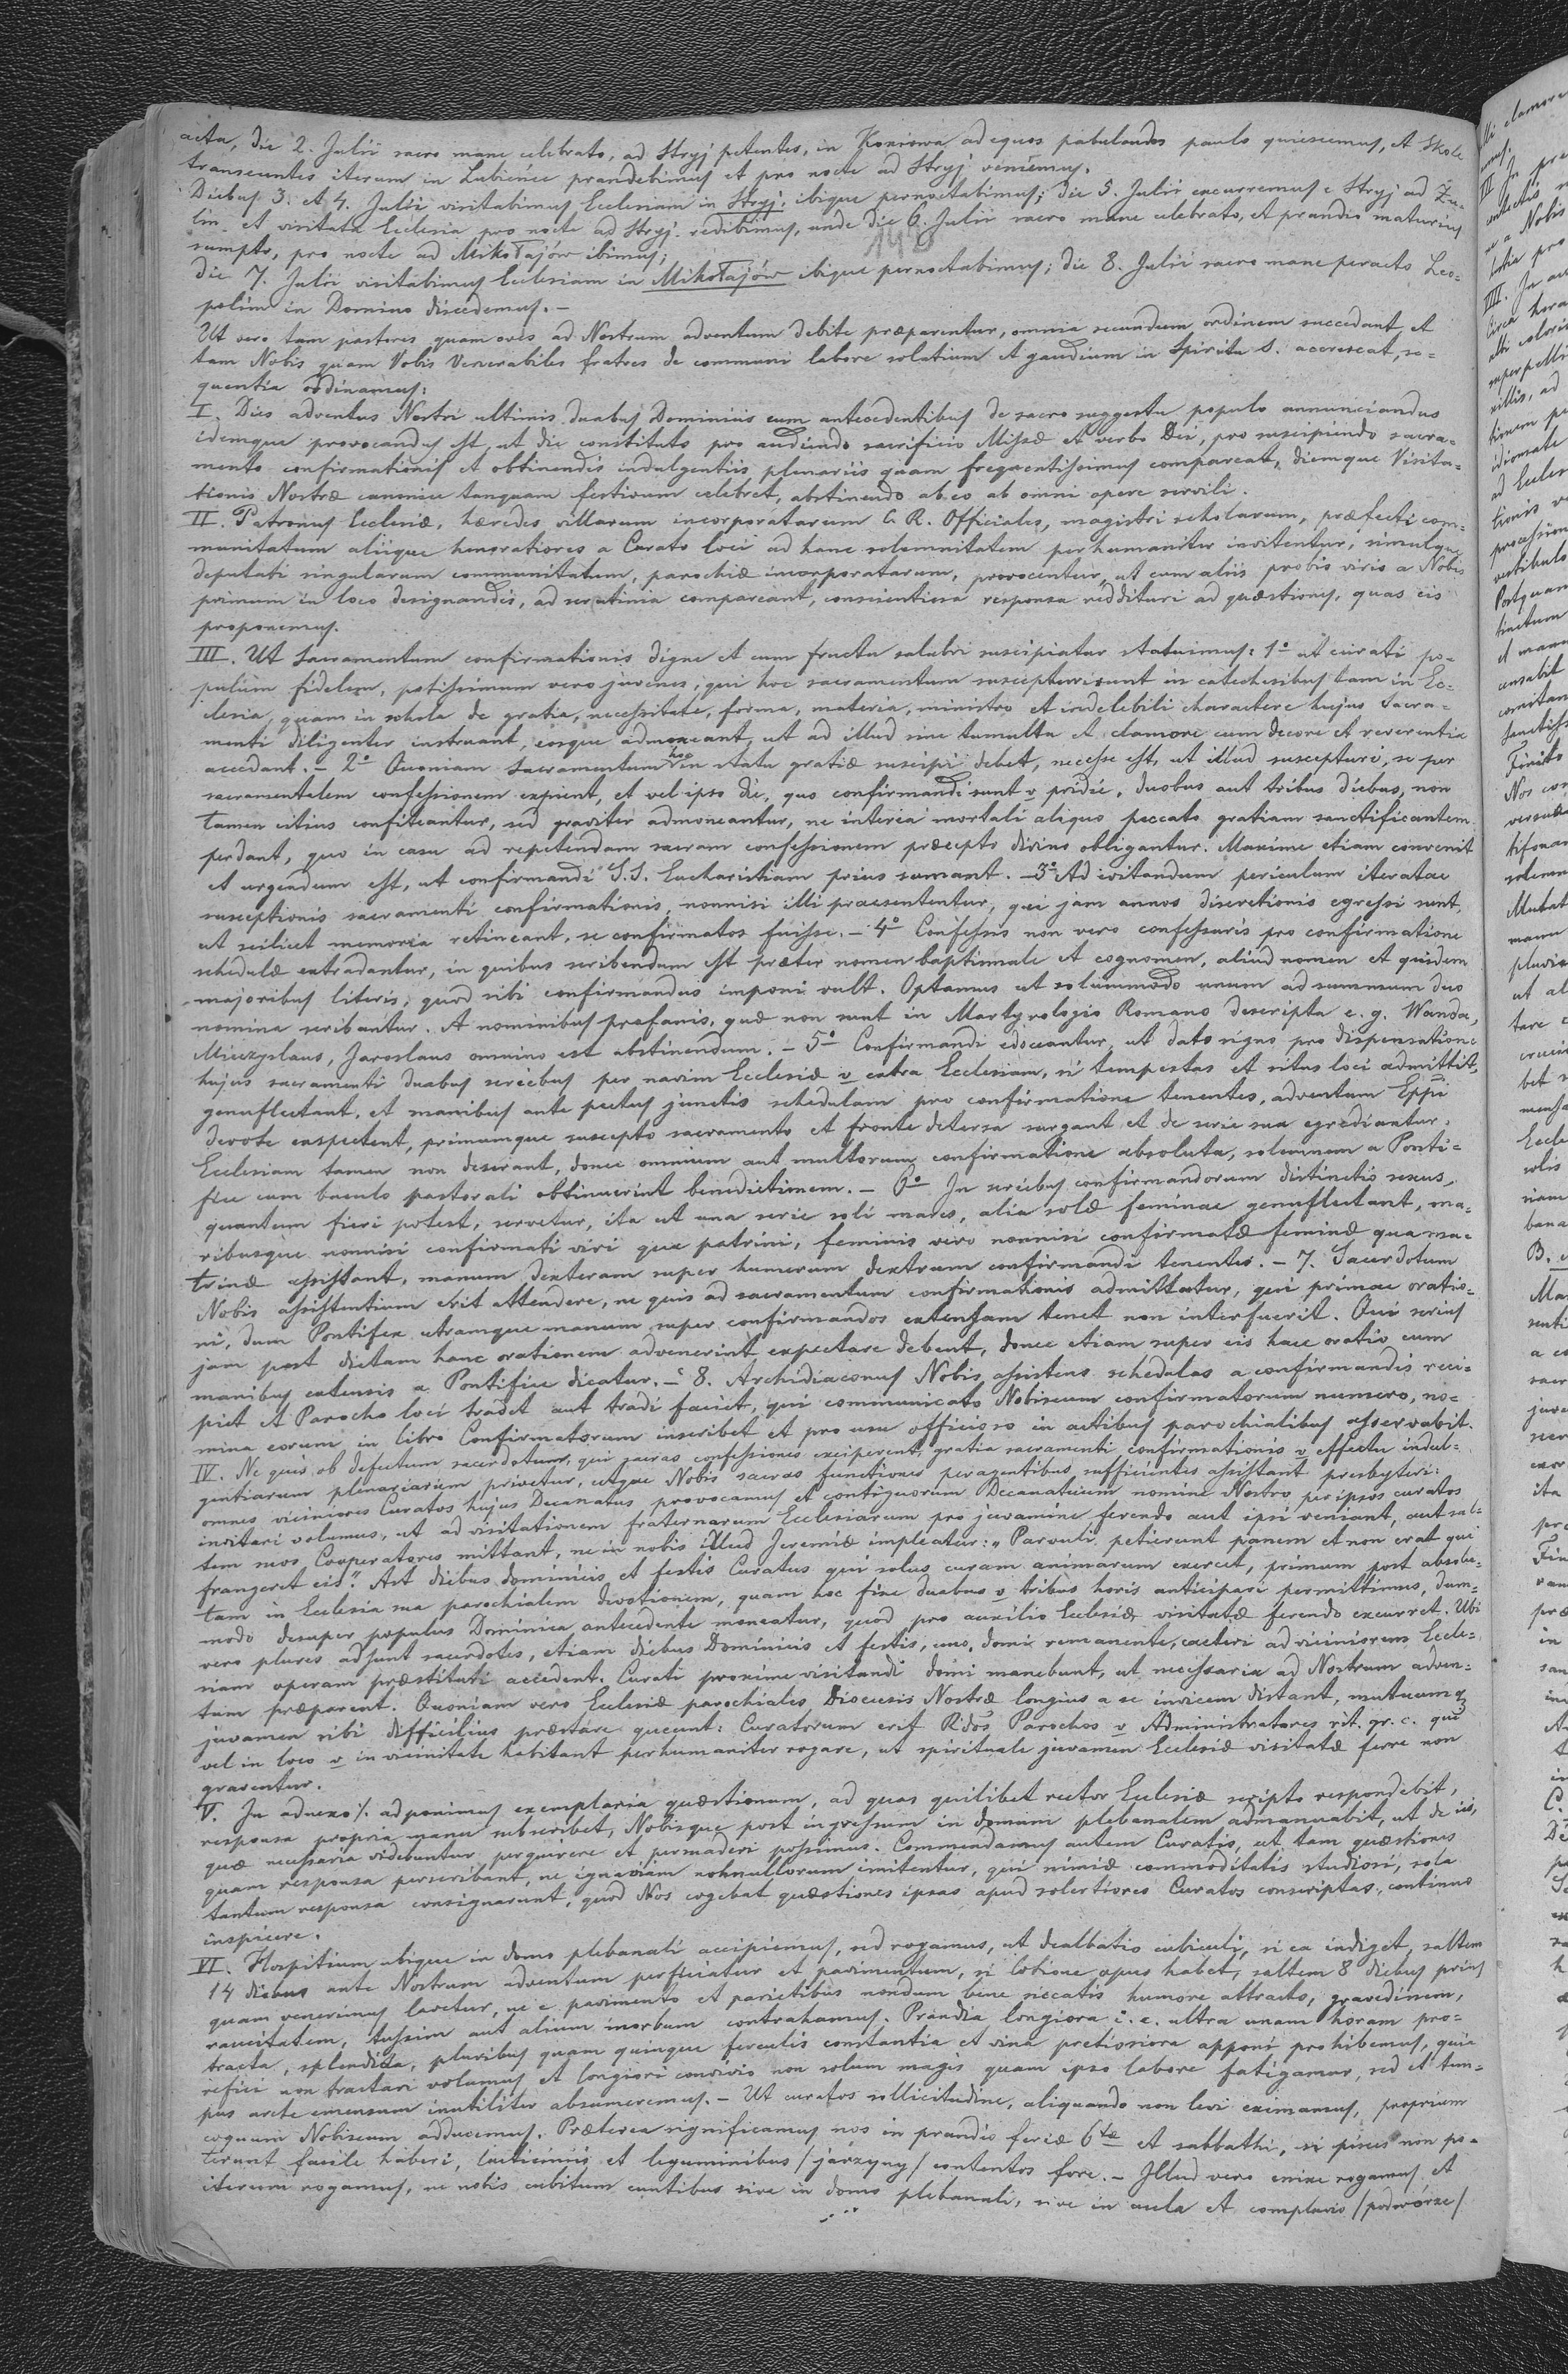 acta, die 2. Julii sacro mane celebrato, ad Stryj petentes, in Koziowa ad equos pabulandos paulo quiescemus, et Skole
transeuntes iterum in Lubience prandebimus et pro nocte ad Stryj veniemus.
Diebus 3. et 4. Julii visitabimus Ecclesiam in Stryj, ibique pernoctabimus; die 5. Julii excurremus e Stryj ad Żu-
lin et visitata Ecclesia pro nocte ad Stryj redibimus, unde die 6. Julii sacro mane celebrato, et prandio maturius
sumpto, pro nocte ad Mikołajów ibimus;
die 7. Julii visitabimus Ecclesiam in Mikołajów ibique pernoctabimus; die 8. Julii sacro mane peracto Leo-
polim in Domino discedemus. -
Ut vero tam pastores quam oves ad Nostrum adventum debite præparentur, omnia secundum ordinem succedant, et
tam Nobis quam Vobis Venerabiles fratres de communi labore solatium et gaudium in Spiritu S. accrescat, se-
quentia ordinamus:
I. Dies adventus Nostri ultimis duabus Dominicis eum antecedentibus de sacro suggestu populo annunciandus
idemque provocandus est, ut die constituto pro audiendo sacrificio Missæ et verbo Dei, pro suscipiendo sacra-
mento confirmationis et obtinendis indulgentiis plenariis quam frequentissimus compareat, diemque Visita-
tionis Nostræ canonicæ tanquam festivum celebret, abstinendo ab eo ab omni opere servili.
II. Patronus Ecclesiæ, hæredes villarum incorporatarum C. R. Officiales, magistri scholarum, præfecti com-
munitatum aliique honoratiores a Curato loci ad hanc solemnitatem perhumaniter invitentur, simulque
deputati singularum communitatum, parochiæ incorporatarum, provocentur, ut cum aliis probis viris a Nobis
primum in loco designandis, ad scrutinia compareant, conscientiosa responsa reddituri ad quæstiones, quas eis
proponemus.
III. Ut Sacramentum confirmationis digne et cum fructu salubri suscipiatur statuimus: 1o ut curati po-
pulum fidelem, potissimum vero juvenes, qui hoc sacramentum suscepturi sunt in catechesibus tam in Ec-
clesia, quam in schola de gratia, necessitate, forma, materia, ministro et indelebili charactere hujus Sacra-
menti diligenter instruant, eosque admoneant, ut ad illud sine tumultu et clamore cum decore et reverentia
accedant. - 2o Quoniam Sacramentum hoc in statu gratiæ suscipi debet, necesse est, ut illud suscepturi, se per
sacramentalem confessionem expient, et vel ipso die, quo confirmandi sunt v pridie, duobus aut tribus diebus, non
tamen citius confiteantur, sed graviter admoneantur, ne interea mortali aliquo peccato gratiam sanctificantem
perdant, quo in casu ad repetendam sacram confessionem præcepto divino obligantur. Maxime etiam convenit
et urgendum est, ut confirmandi S.S. Eucharistiam prius sumant. - 3o Ad evitandum periculum iteratae
susceptionis sacramenti confirmationis, nonnisi illi praesententur, qui jam annos discretionis egressi sunt,
ut scilicet memoria retineant, se confirmatos fuisse. - 4o Confessis non vero confessuris pro confirmatione
schedulæ extradantur, in quibus scribendum est præter nomen baptismale et cognomen, aliud nomen et quidem
majoribus literis, quod sibi confirmandus imponi vult. Optamus ut solummodo unum ad summum duo
nomina scribantur. A nominibus profanis, quæ non sunt in Martyrologio Romano descripta e. g. Wanda,
Mieczyslaus, Jaroslaus omnino est abstinendum. - 5o Confirmandi edoceantur, ut dato signo pro dispensatione
hujus sacramenti duabus seriebus per navim Ecclesiæ v extra Ecclesiam, si tempestas et situs loci admittit,
genuflectant, et manibus ante pectus junctis schedulam pro confirmatione tenentes, adventum Eppi
devote exspectent, primumque suscepto sacramento et fronte detersa surgant et de serie sua egrediantur,
Ecclesiam tamen non deserant, donec omnium aut multorum confirmatione absoluta, solemnem a Ponti-
fice cum baculo pastorali obtinuerint benedictionem. - 6o In seriebus confirmandorum distinctio sexus,
quantum fieri potest, servetur, ita ut una serie soli mares, alia solæ feminae genuflectant, ma-
ribusque nonnisi confirmati viri qua patrini, feminis vero nonnisi confirmatæ feminæ qua ma-
trinæ assistant, manum dexteram super humerum dextrum confirmandi tenentes. - 7. Sacerdotum
Nobis assistentium erit attendere, ne quis ad sacramentum confirmationis admittatur, qui primae oratio-
ni, dum Pontifex utramque manum super confirmandos extensam tenet non interfuerit. Qui serius
jam post dictam hanc orationem advenerint expectare debent, donec etiam super eis haec oratio cum
manibus extensis a Pontifice dicatur. - 8. Archidiaconus Nobis assistens schedulas a confirmandis reci-
piet et Parocho loci tradet aut tradi faciet, qui communicato Nobiscum confirmatorum numero, no-
mina eorum in libro Confirmatorum inscribet et pro usu officioso in actibus parochialibus asservabit.
IV. Ne quis ob defectum sacerdotum, qui sacras confessiones exciperent, gratia sacramenti confirmationis v effectu indul-
gentiarum plenariarum privetur, utque Nobis sacras functiones peragentibus sufficientes assistant presbyteri:
omnes viciniores Curatos hujus Decanatus provocamus et contiguorum Decanatuum nomine Nostro per ipsos curatos
invitari volumus, ut ad visitationem fraternarum Ecclesiarum pro juvamine ferendo aut ipsi veniant, aut sal-
tem suos Cooperatores mittant, ne in nobis illud Jeremiæ impleatur: "Parvuli petierunt panem et non erat qui
frangeret eis". Ast diebus dominicis et festis Curatus qui solus curam animarum exercet, primum post absolu-
tam in Ecclesia sua parochialem devotionem, quam hoc fine duabus v tribus horis anticipari permittimus, dum-
modo desuper populus Dominica antecedente moneatur, quod pro auxilio Ecclesiæ visitatæ ferendo excurret. Ubi
vero plures adsunt sacerdotes, etiam diebus Dominicis et festis, uno domi remanente, cæteri ad viciniorem Eccle-
siam operam præstituri accedent. Curati proxime visitandi domi manebunt, ut necessaria ad Nostrum adven-
tum præparent. Quoniam vero Ecclesiæ parochiales Dioecesis Nostræ longius a se invicem distant, mutuumq
juvamen sibi difficilius præstare queunt: Curatorum erit Rdos Parochos v Administratores rit. gr. c. qui
vel in loco v in vicinitate habitant perhumaniter rogare, ut spirituale juvamen Ecclesiæ visitatæ ferre non
graventur.
V. In adnexo ./. adponimus exemplaria quæstionum, ad quas quilibet rector Ecclesiæ scripto respondebit,
responsa propria manu subscribet, Nobisque post ingressum in domum plebanalem admanuabit, ut de iis,
quæ necessaria videbuntur perquirere et permaderi possimus. Commendamus autem Curatis, ut tam quæstiones
quam responsa perscribant, ne ignaviam nonnullorum imitentur, qui nimiæ commoditatis studiosi, sola
tantum responsa consignarunt, quod Nos cogebat quæstiones ipsas apud solertiores Curatos conscriptas, continuo
inspicere.
VI. Hospitium ubique in domo plebanali accipiemus, sed rogamus, ut dealbatio cubiculi, si ea indiget, saltem
14 diebus ante Nostrum adventum perficiatur et pavimentum, si lotione opus habet, saltem 8 diebus prius
quam venerimus lavetur, ne e pavimento et parietibus nondum bene siccatis humore attracto, gravedinem,
raucitatem, tussim aut alium morbum contrahamus. Prandia longiora i. e. ultra unam horam pro-
tracta, splendida, pluribus quam quinque ferculis constantia et vina pretiosiora apponi prohibemus, quia
refici non tractari volumus et longiori convivio non solum magis quam ipso labore fatigamur, sed et tem-
pus arcte emensum inutiliter absumeremus. - Ut curatos sollicitudine, aliquando non levi eximamus, proprium
coquum Nobiscum adducemus. Præterea significamus nos in prandio feriæ 6tæ et sabbathi, si pisces non po-
terunt facile haberi, lacticiniis et leguminibus /jarzyny/ contentos fore. - Illud vero enixe rogamus et
iterum rogamus, ne nobis cubitum euntibus sive in domo plebanali, sive in aula et compluvio /podwórze/